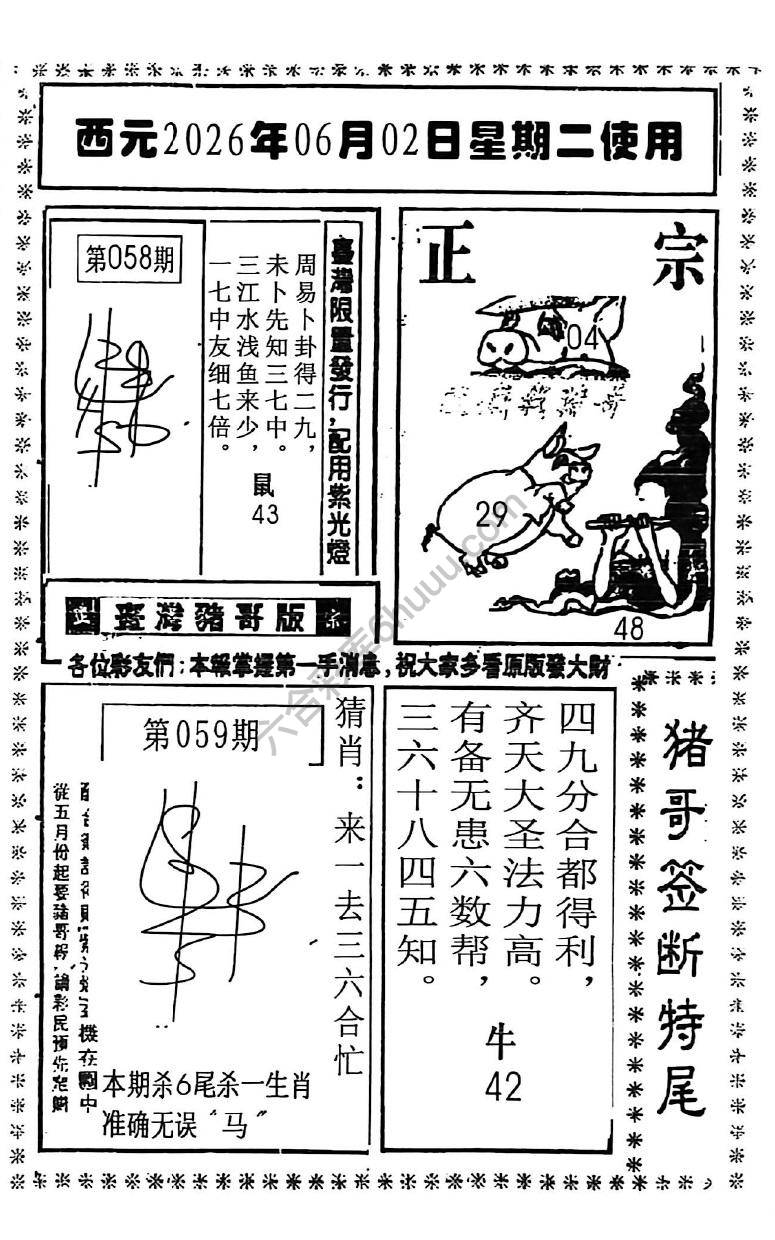 西元2026年06月02日星期二使用
第058期
周易卜卦得二九，
未卜先知三七中。
三江水浅鱼来少，
一七中友细七倍。
鼠
43
臺灣限量發行，配用紫光燈
正宗
04
29
48
正 臺灣豬哥版 宗
各位彩友們：本報掌握第一手消息，祝大家多看原版發大財
第059期
猜肖：来一去三六合忙
從五月份起要豬哥報
本期杀6尾杀一生肖
准确无误“马”
四九分合都得利，
齐天大圣法力高。
有备无患六数帮，
三六十八四五知。
牛
42
猪哥签断特尾
六合彩库6huuu.com